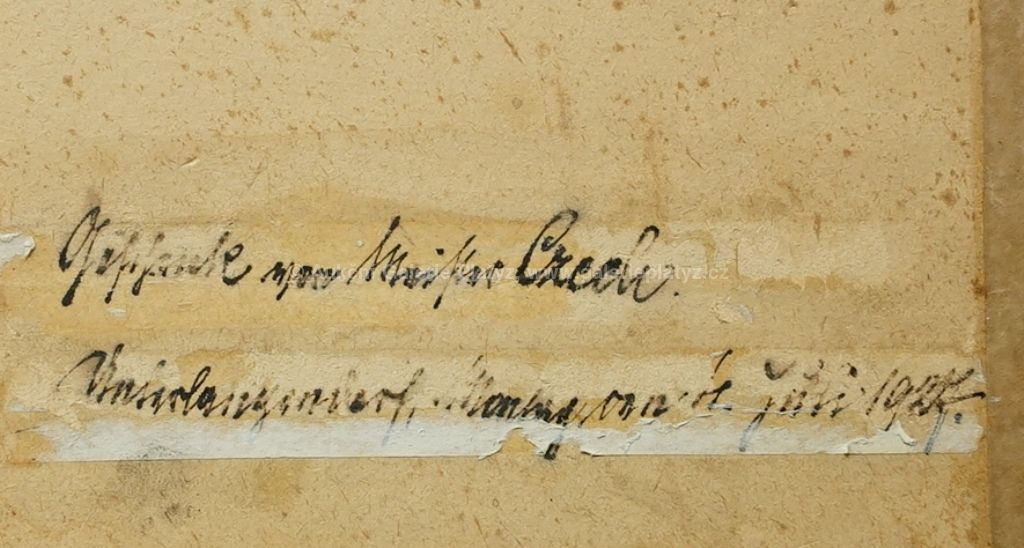 Geschenk von Meister Czech.
Unterlangendorf, Montag, Juli 1927.